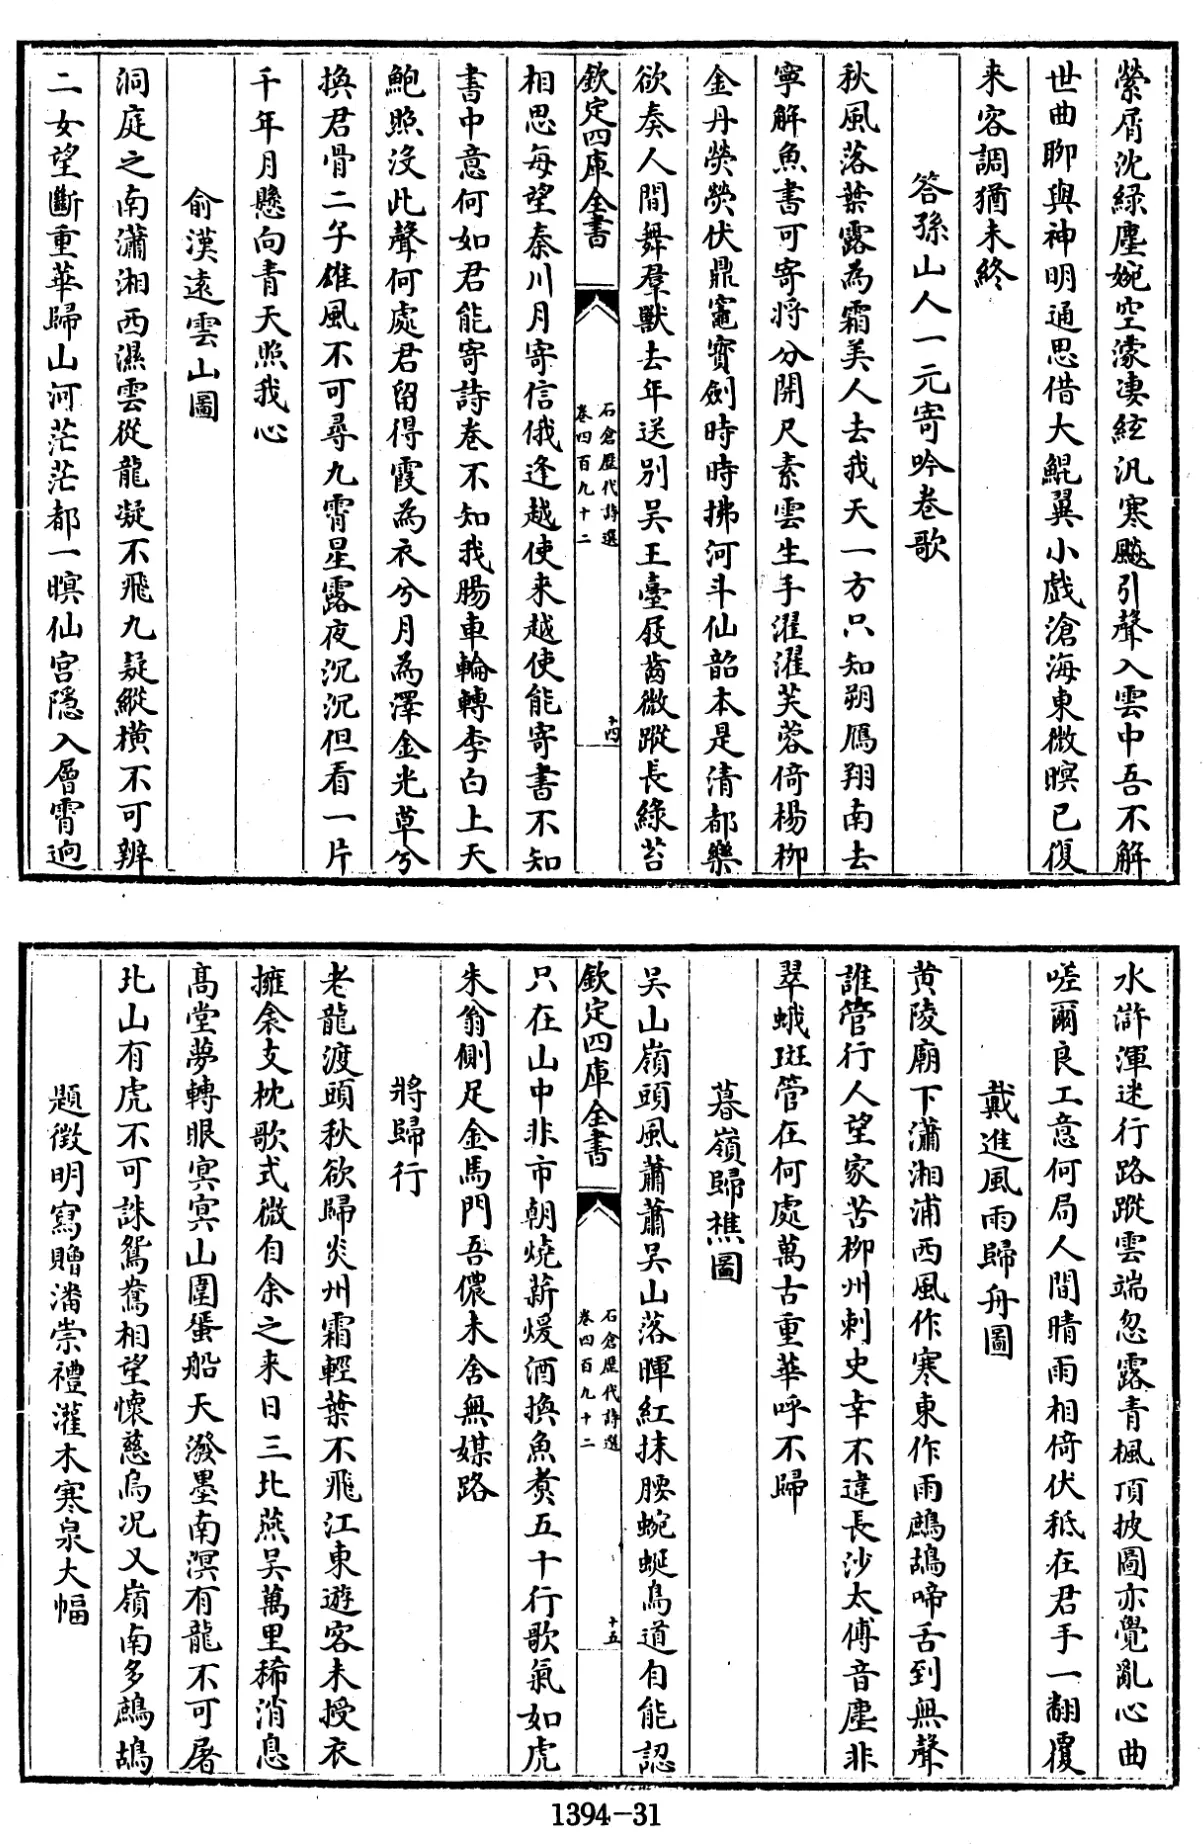 縈屑沈緑塵婉空濛凄絃汎寒飈引聲入雲中吾不解
世曲聊與神明通思借大鯤翼小戲滄海東微暝已復
来容調猶未終
答孫山人一元寄吟巻歌
秋風落葉露為霜美人去我天一方只知朔鴈翔南去
寧解魚書可寄將分開尺素雲生手濯濯芙蓉倚楊柳
金丹熒熒伏鼎竈寳劍時時拂河斗仙韶本是清都樂
欲奏人間舞羣獸去年送别吴王臺屐齒微蹤長緑苔
欽定四庫全書
石倉歴代詩選
卷四百九十二
十四
相思每望秦川月寄信俄逢越使来越使能寄書不知
書中意何如君能寄詩巻不知我腸車輪轉李白上天
鮑照没此聲何處君留得霞為衣兮月為澤金光草兮
換君骨二子雄風不可尋九霄星露夜沉沉但看一片
千年月懸向青天照我心
俞漢逺雲山圖
洞庭之南瀟湘西濕雲從龍凝不飛九疑縱横不可辨
二女望斷重華歸山河茫茫都一暝仙宫隱入層霄逈
水滸渾迷行路蹤雲端忽露青楓頂披圖亦覺亂心曲
嗟爾良工意何局人間晴雨相倚伏秪在君手一翻覆
戴進風雨歸舟圖
黄陵廟下瀟湘浦西風作寒東作雨鷓鴣啼舌到無聲
誰管行人望家苦柳州刺史幸不違長沙太傅音塵非
翠蛾斑管在何處萬古重華呼不歸
暮嶺歸樵圖
吴山嶺頭風蕭蕭吴山落暉紅抹腰蜿蜒鳥道自能認
欽定四庫全書
石倉歴代詩選
卷四百九十二
十五
只在山中非市朝燒薪煖酒換魚煑五十行歌氣如虎
朱翁側足金馬門吾儂未舍無媒路
將歸行
老龍渡頭秋欲歸炎州霜輕葉不飛江東遊客未授衣
擁衾支枕歌式微自余之来日三北燕吴萬里稀消息
髙堂夢轉眼冥冥山圍蜑船天潑墨南溟有龍不可屠
北山有虎不可誅鴛鴦相望懐慈烏况又嶺南多鷓鴣
題徴明寫贈潘崇禮灌木寒泉大幅
1394-31